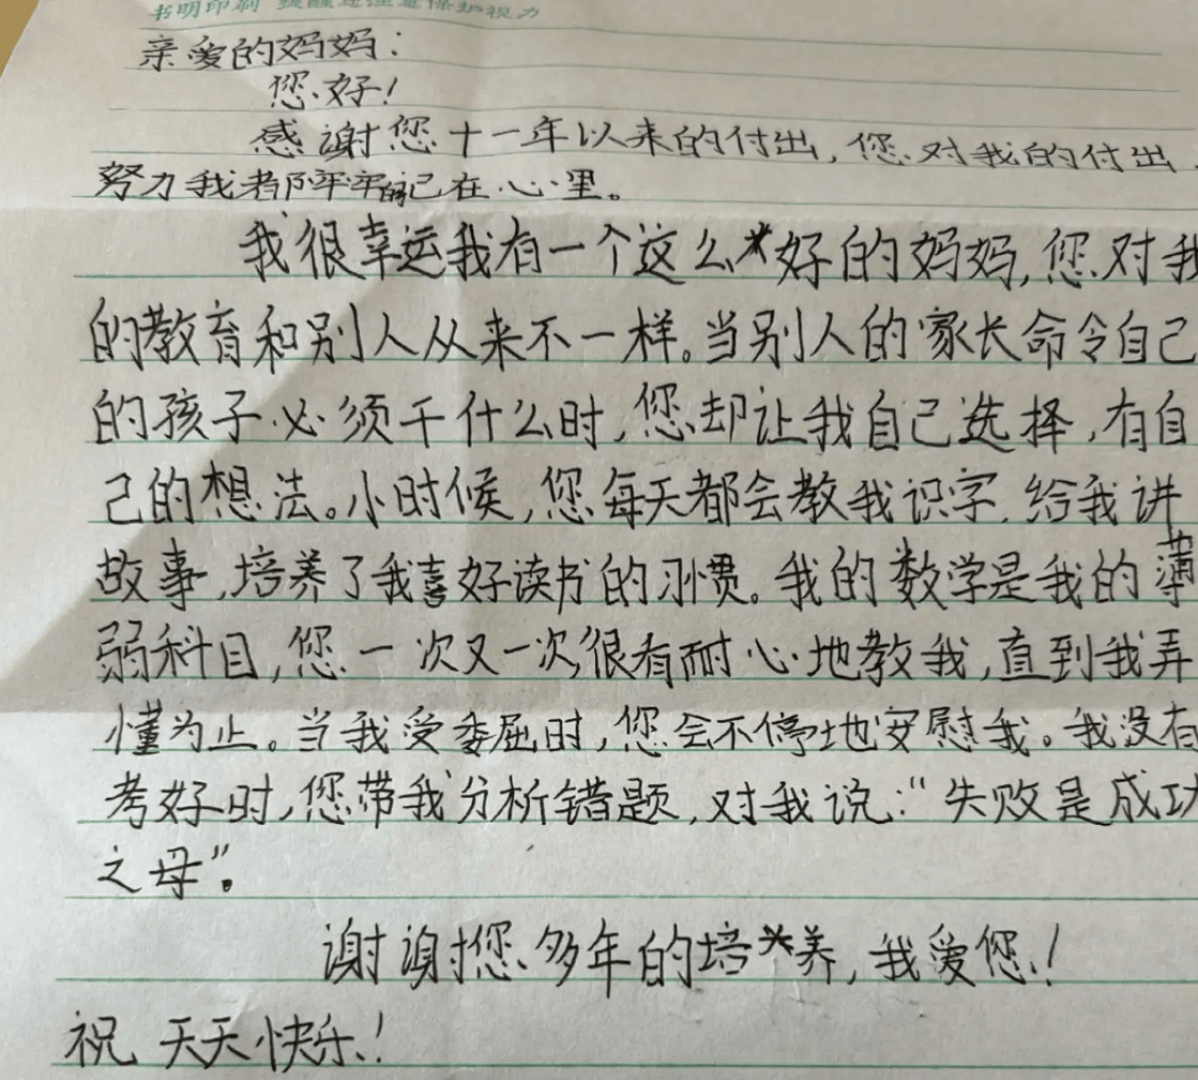 书明印刷 提醒您注意保护视力
亲爱的妈妈：
您好！
感谢您十一年以来的付出，您对我的付出、
努力我都牢牢的记在心里。
我很幸运我有一个这么好的妈妈，您对我
的教育和别人从来不一样。当别人的家长命令自己
的孩子必须干什么时，您却让我自己选择，有自
己的想法。小时候，您每天都会教我识字，给我讲
故事，培养了我喜好读书的习惯。我的数学是我的薄
弱科目，您一次又一次很有耐心地教我，直到我弄
懂为止。当我受委屈时，您会不停地安慰我。我没有
考好时，您带我分析错题，对我说：“失败是成功
之母”。
谢谢您多年的培养，我爱您！
祝 天天快乐！